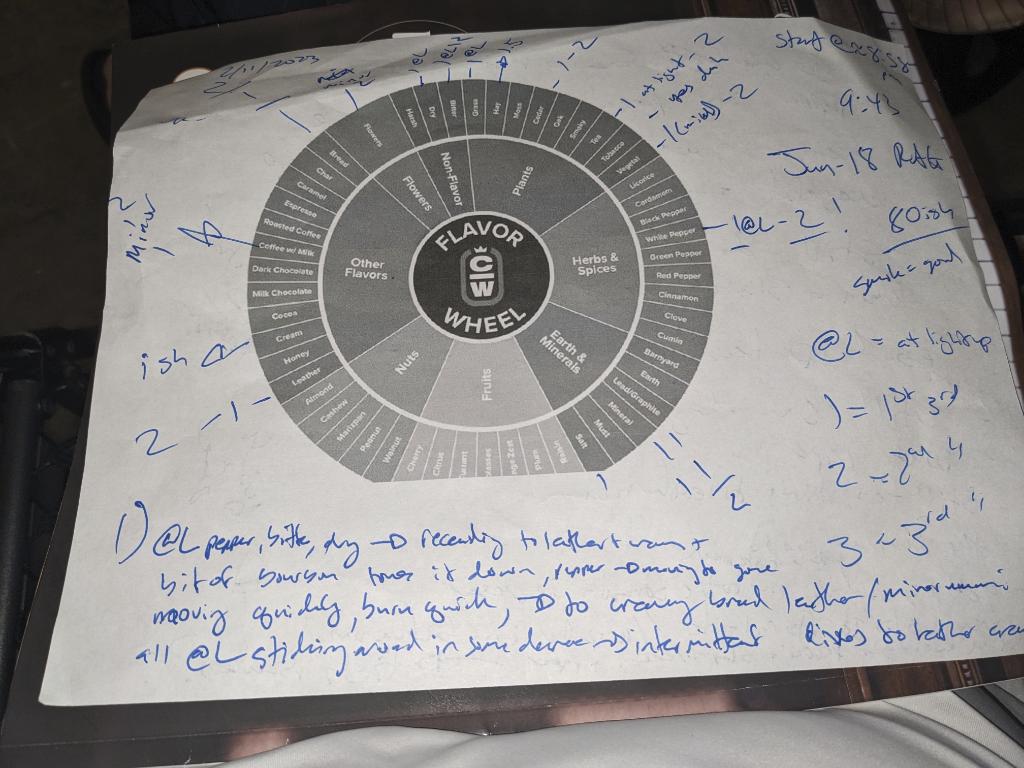 Start @
9:43
Jun-18
80ish
@L = at lightup
1 = 1st 3rd
2 = 2nd "
3 ~ 3rd "
2/11/2023
@L
@L
@L
1-2
-1 at light -2
-1 (mild) -2
1@L - 2!
minor
ish
2 - 1 -
1
2
FLAVOR
CEW
WHEEL
Non-Flavor
Plants
Herbs & Spices
Earth & Minerals
Fruits
Nuts
Other Flavors
Flowers
Harsh
Dry
Bitter
Grass
Hay
Moss
Cedar
Oak
Smoky
Tea
Tobacco
Vegetal
Licorice
Cardamom
Black Pepper
White Pepper
Green Pepper
Red Pepper
Cinnamon
Clove
Cumin
Barnyard
Earth
Lead/Graphite
Mineral
Must
Salt
Raisin
Plum
Citrus
Cherry
Walnut
Peanut
Marzipan
Cashew
Almond
Leather
Honey
Cream
Cocoa
Milk Chocolate
Dark Chocolate
Coffee w/ Milk
Roasted Coffee
Espresso
Caramel
Char
Bread
Flowers
1) @L pepper, bitter, dry → receeding to leather + cream +
bit of bourbon tones it down, pepper → moving to gone
moving quickly, burn quick, → to creamy bread leather/minor
all @L sticking around in some degree → intermittent to leather